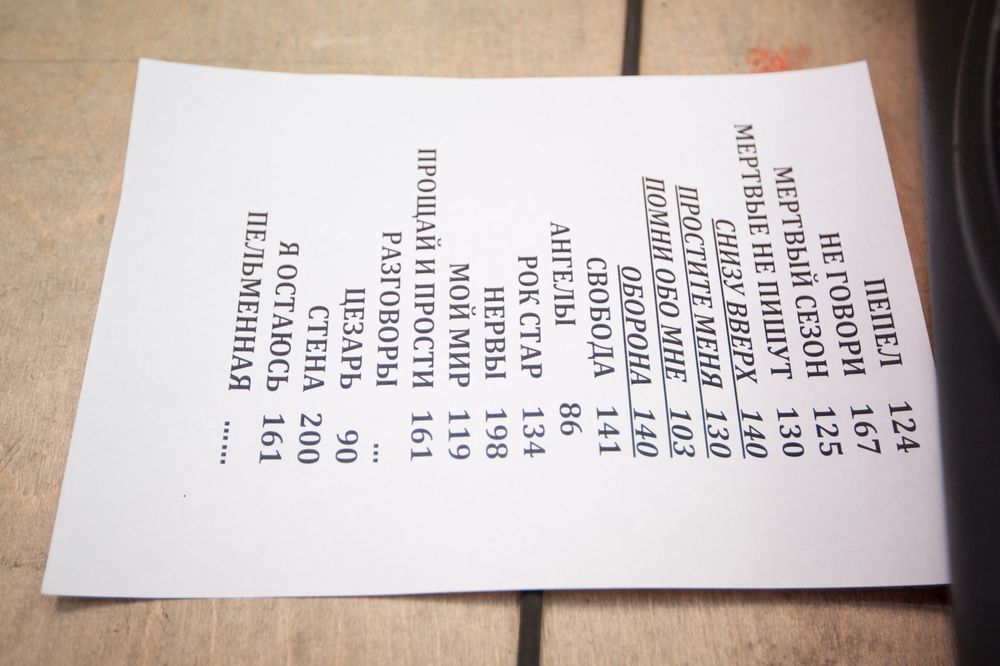 ПЕПЕЛ 124
НЕ ГОВОРИ 167
МЕРТВЫЙ СЕЗОН 125
МЕРТВЫЕ НЕ ПИШУТ 130
СНИЗУ ВВЕРХ 140
ПРОСТИТЕ МЕНЯ 130
ПОМНИ ОБО МНЕ 103
ОБОРОНА 140
СВОБОДА 141
АНГЕЛЫ 86
РОК СТАР 134
НЕРВЫ 198
МОЙ МИР 119
ПРОЩАЙ И ПРОСТИ 161
РАЗГОВОРЫ ...
ЦЕЗАРЬ 90
СТЕНА 200
Я ОСТАЮСЬ 161
ПЕЛЬМЕННАЯ ......